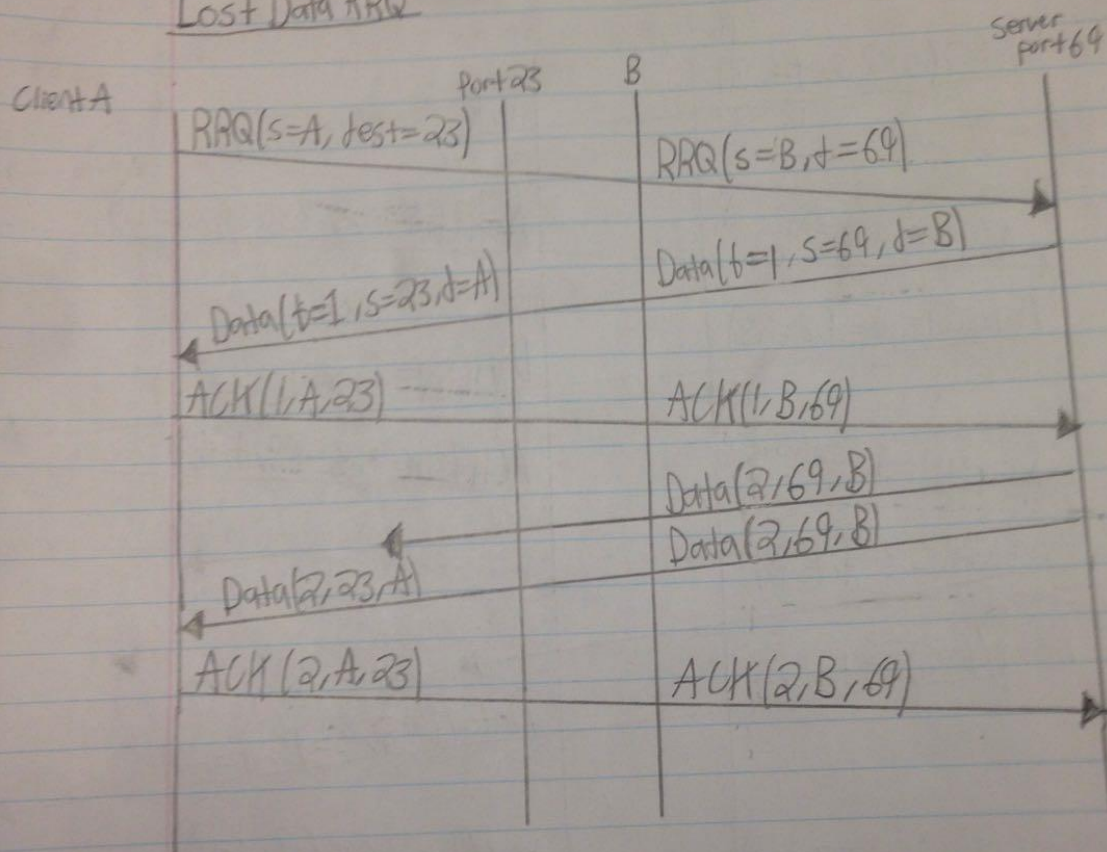 Lost Data RRQ
Server
port 69
Client A
Port 23
B
RRQ(s=A, dest=23)
RRQ(s=B, d=69)
Data(t=1, s=69, d=B)
Data(t=1, s=23, d=A)
ACK(1,A,23)
ACK(1,B,69)
Data(2,69,B)
Data(2,69,B)
Data(2,23,A)
ACK(2,A,23)
ACK(2,B,69)